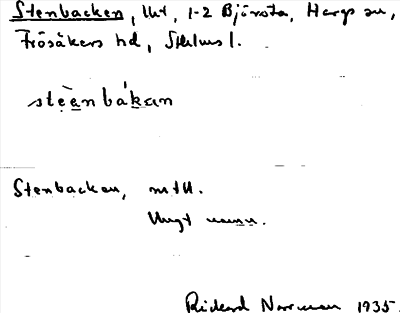 Stenbacken, lht, 1-2 Björsta, Hargs sn,
Frösåkers hd, Sthlms l.
stèanbákan
Stenbacken, mtU.
Ungt namn.
Rickard Norrman 1935.